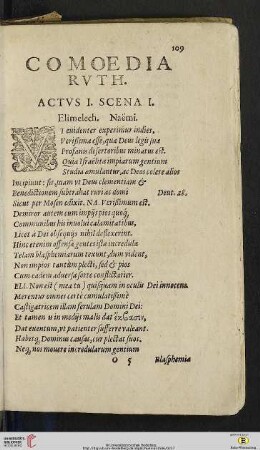 109
COMOEDIA
RVTH.
ACTVS I. SCENA I.
Elimelech. Naëmi.
VT euidenter experimur indies,
Verißima esse, quæ Deus legis suæ
Profanis desertoribus minatus est.
Quia Israëlitæ impiarum gentium
Studia æmulantur, ac Deos colere alios
Incipiunt: fit, suam vt Deus clementiam &
Benedictionem subtrahat ruri ac domi Deut. 28.
Sicut per Mosen edixit. NA. Verißimum est.
Demiror autem eum impijs pios quoq;
Communibus his inuoluere calamitatibus,
Licet à Dei obsequijs nihil deflexerint.
Hinc etenim offensa gentes ista incredula
Telam blasphemiarum texunt, dum vident,
Non impios tantùm plecti, sed & pios
Cum eadem aduersa sorte conflictarier.
ELI. Non est (mea tu) quisquam in oculis Dei innocens.
Merentur omnes certè cumulatißimè
Castigatricem illam ferulam Domini Dei:
Et tamen is in medijs malis dat ἔκβασιν,
Dat euentum, vt patienter sufferre valeant.
Habetq; Dominus causas, cur plectat suos.
Neq; nos mouere incredularum gentium
O 5 Blasphemia